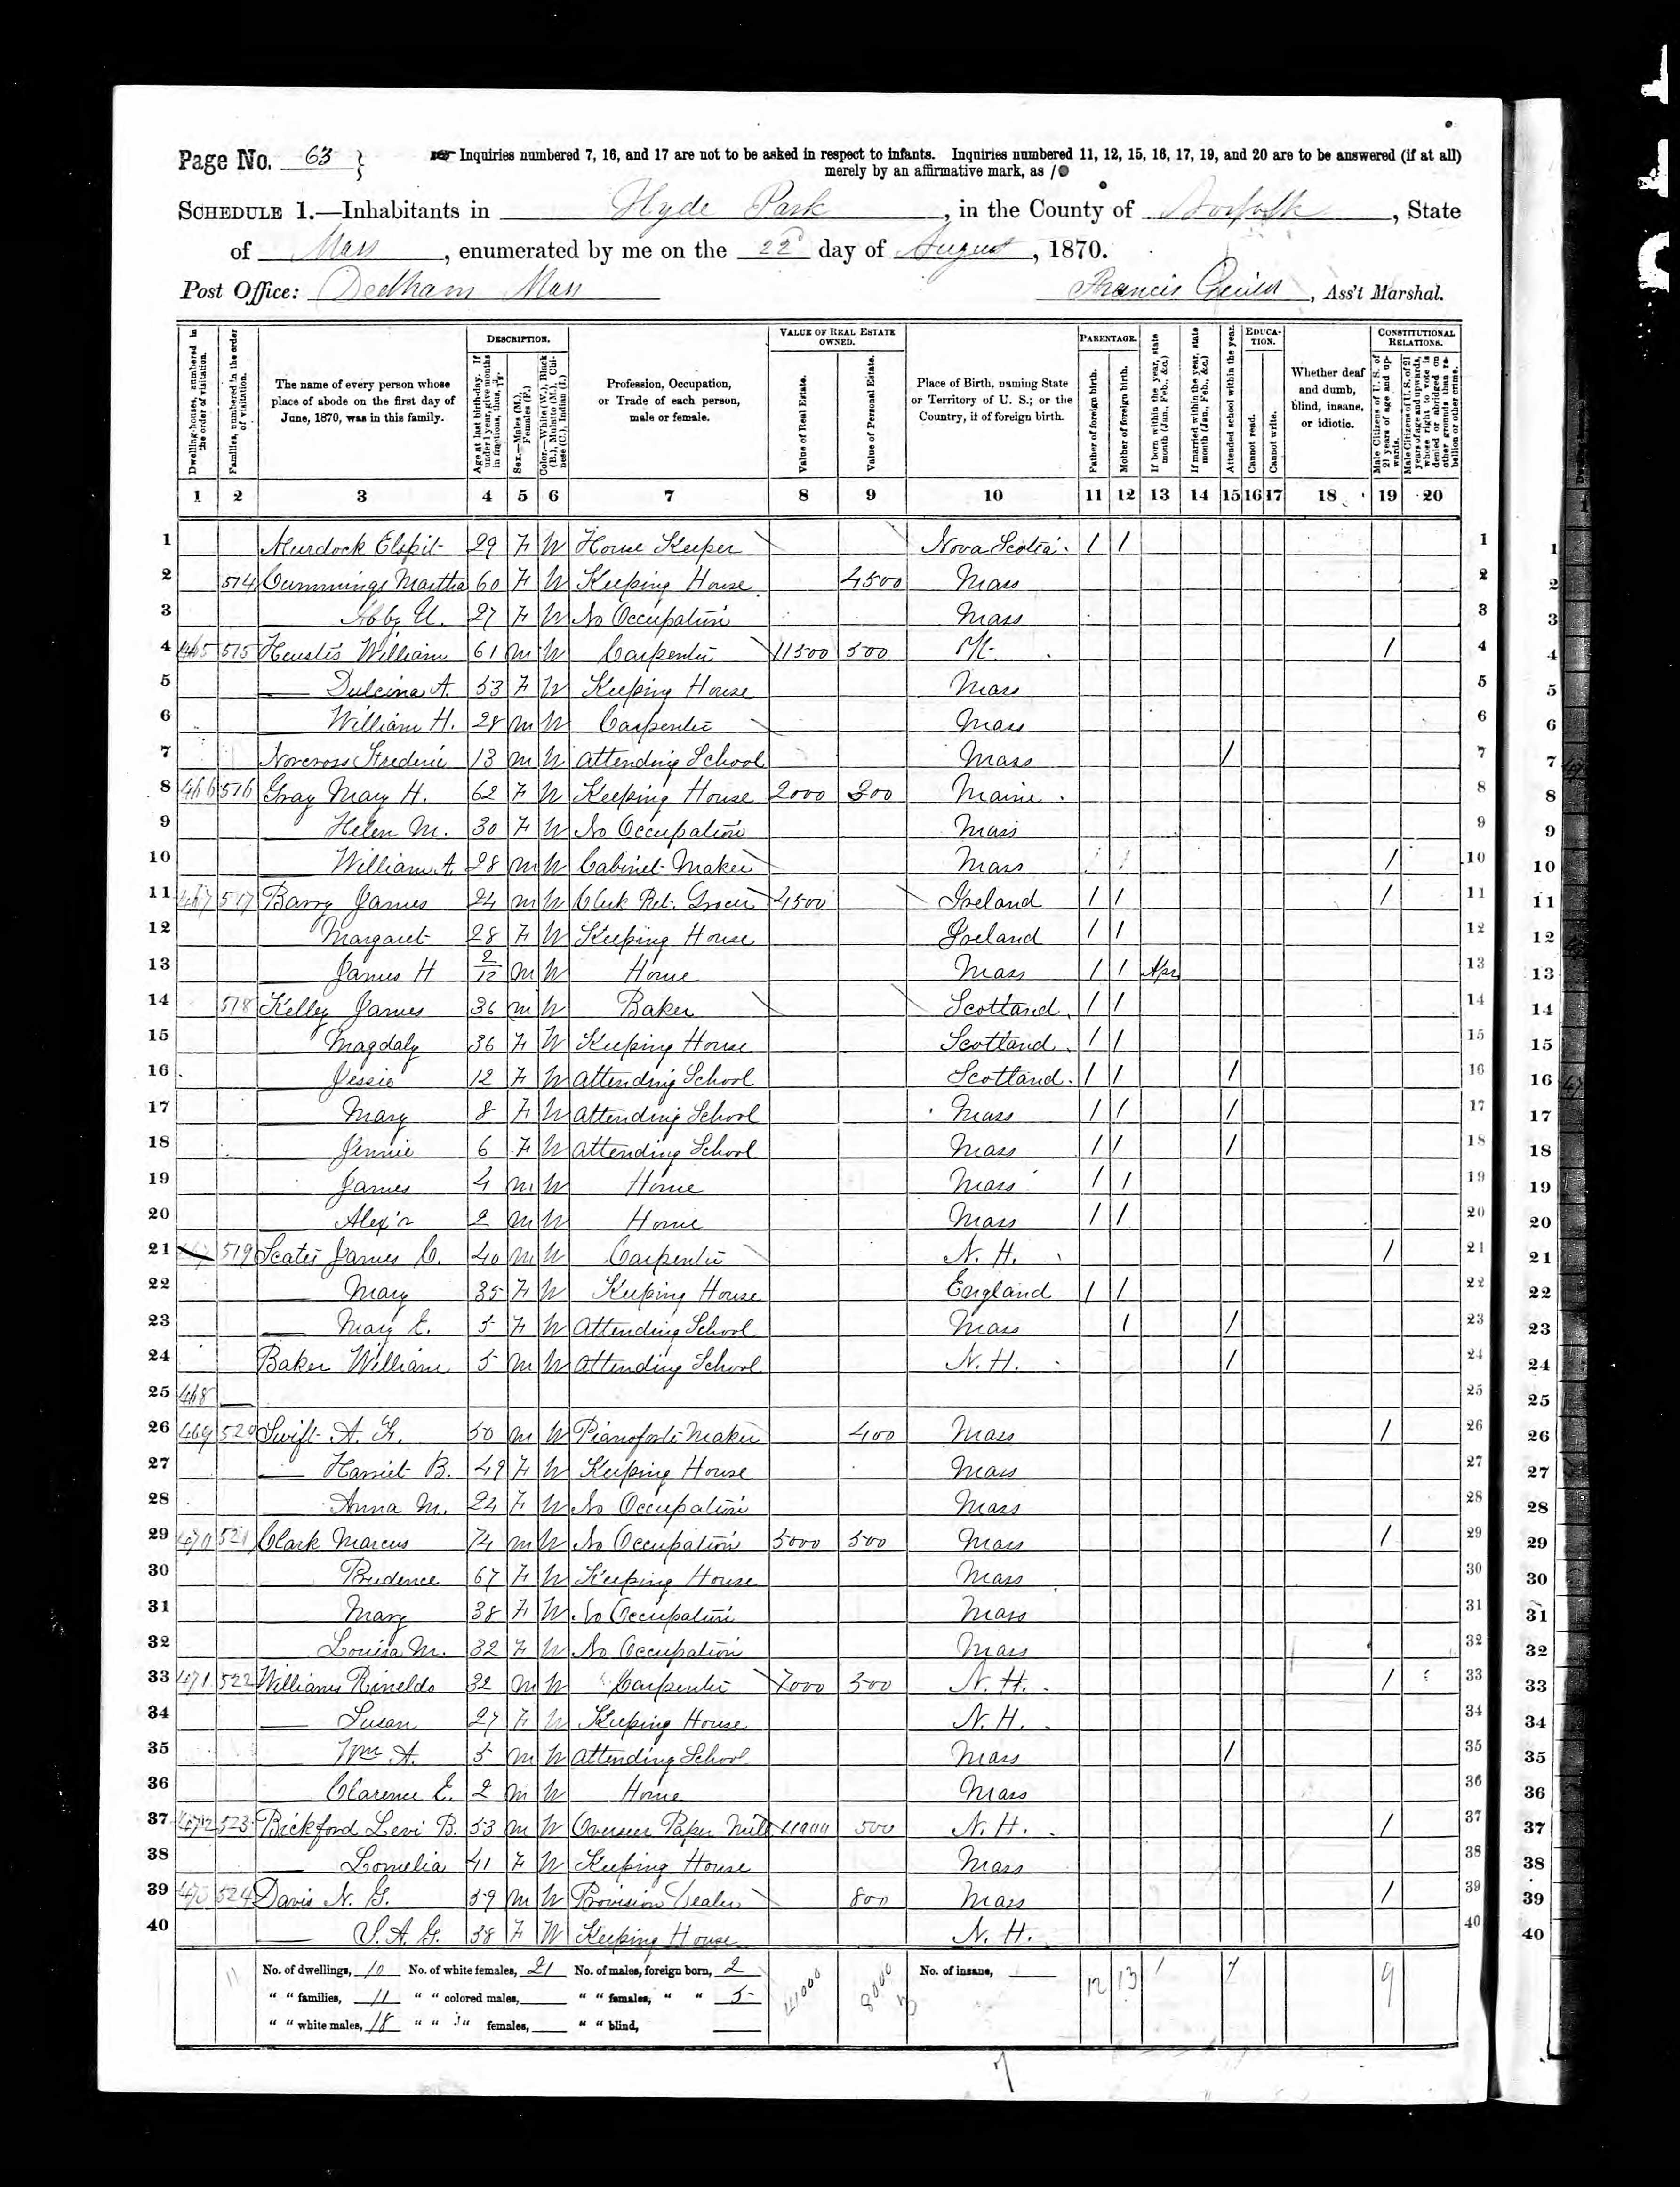 Page No. 63
Inquiries numbered 7, 16, and 17 are not to be asked in respect to infants. Inquiries numbered 11, 12, 15, 16, 17, 19, and 20 are to be answered (if at all)
merely by an affirmative mark, as /
SCHEDULE 1.—Inhabitants in Hyde Park, in the County of Norfolk, State
of Mass, enumerated by me on the 22d day of August, 1870.
Post Office: Dedham Mass Francis Guild, Ass't Marshal.
Dwelling-houses, numbered in the order of visitation.
Families, numbered in the order of visitation.
The name of every person whose place of abode on the first day of June, 1870, was in this family.
DESCRIPTION.
Age at last birth-day. If under 1 year, give months in fractions, thus, 3/12.
Sex.—Males (M.), Females (F.)
Color.—White (W.), Black (B.), Mulatto (M.), Chinese (C.), Indian (I.)
Profession, Occupation, or Trade of each person, male or female.
VALUE OF REAL ESTATE OWNED.
Value of Real Estate.
Value of Personal Estate.
Place of Birth, naming State or Territory of U. S.; or the Country, if of foreign birth.
PARENTAGE.
Father of foreign birth.
Mother of foreign birth.
If born within the year, state month (Jan., Feb., &c.)
If married within the year, state month (Jan., Feb., &c.)
Attended school within the year.
EDUCATION.
Cannot read.
Cannot write.
Whether deaf and dumb, blind, insane, or idiotic.
CONSTITUTIONAL RELATIONS.
Male Citizens of U. S. of 21 years of age and upwards.
Male Citizens of U. S. of 21 years of age and upwards, whose right to vote is denied or abridged on other grounds than rebellion or other crime.
1 2 3 4 5 6 7 8 9 10 11 12 13 14 15 16 17 18 19 20
1 Murdock Elspit 29 F W House Keeper Nova Scotia / / 1
2 514 Cummings Martha 60 F W Keeping House 4500 Mass 2
3 Abby 27 F W No Occupation Mass 3
4 465 515 Heustis William 61 M W Carpenter 11500 500 / 4
5 —— Dulcina A. 53 F W Keeping House Mass 5
6 William H. 28 M W Carpenter Mass 6
7 Norcross Frederic 13 M W Attending School Mass / 7
8 466 516 Gray Mary H. 62 F W Keeping House 2000 300 Maine 8
9 Helen M. 30 F W No Occupation Mass 9
10 William A. 28 M W Cabinet Maker Mass / 10
11 467 517 Barry James 24 M W Clerk Ret. Grocer 4500 Ireland / / / 11
12 Margaret 28 F W Keeping House Ireland / / 12
13 James H 2/12 M W Home Mass / / Apr 13
14 518 Kelley James 36 M W Baker Scotland / / 14
15 Magdaly 36 F W Keeping House Scotland / / 15
16 Jessie 12 F W Attending School Scotland / / / 16
17 Mary 8 F W Attending School Mass / / / 17
18 Jennie 6 F W Attending School Mass / / / 18
19 James 4 M W Home Mass / / 19
20 Alex'r 2 M W Home Mass / / 20
21 519 James C. 40 M W Carpenter N. H. / 21
22 —— Mary 35 F W Keeping House England / / 22
23 —— Mary E. 5 F W Attending School Mass / / 23
24 Baker William 5 M W Attending School N. H. / 24
25 468 — 25
26 469 520 Swift A. F. 50 M W Pianoforte Maker 400 Mass / 26
27 —— Harriet B. 49 F W Keeping House Mass 27
28 Anna M. 24 F W No Occupation Mass 28
29 470 521 Clark Marcus 74 M W No Occupation 5000 500 Mass / 29
30 —— Prudence 67 F W Keeping House Mass 30
31 —— Mary 38 F W No Occupation Mass 31
32 Louisa M. 32 F W No Occupation Mass 32
33 471 522 Williams Rinaldo 32 M W Carpenter 7000 500 N. H. / 33
34 —— Susan 27 F W Keeping House N. H. 34
35 Wm A. 5 M W Attending School Mass / 35
36 Clarence E. 2 M W Home Mass 36
37 472 523 Bickford Levi B. 53 M W Overseer Paper Mill 11000 500 N. H. / 37
38 —— Lomelia 41 F W Keeping House Mass 38
39 473 524 Davis N. G. 59 M W Provision Dealer 800 Mass / 39
40 —— S. A. G. 58 F W Keeping House N. H. 40
No. of dwellings, 10 No. of white females, 21 No. of males, foreign born, 2 41000 8000 No. of insane, 12 13 1 7 9
" " families, 11 " " colored males, " " females, " " 5
" " white males, 18 " " " females, " " blind,
11
7
1
2
3
4
5
6
7
8
9
10
11
12
13
14
15
16
17
18
19
20
21
22
23
24
25
26
27
28
29
30
31
32
33
34
35
36
37
38
39
40